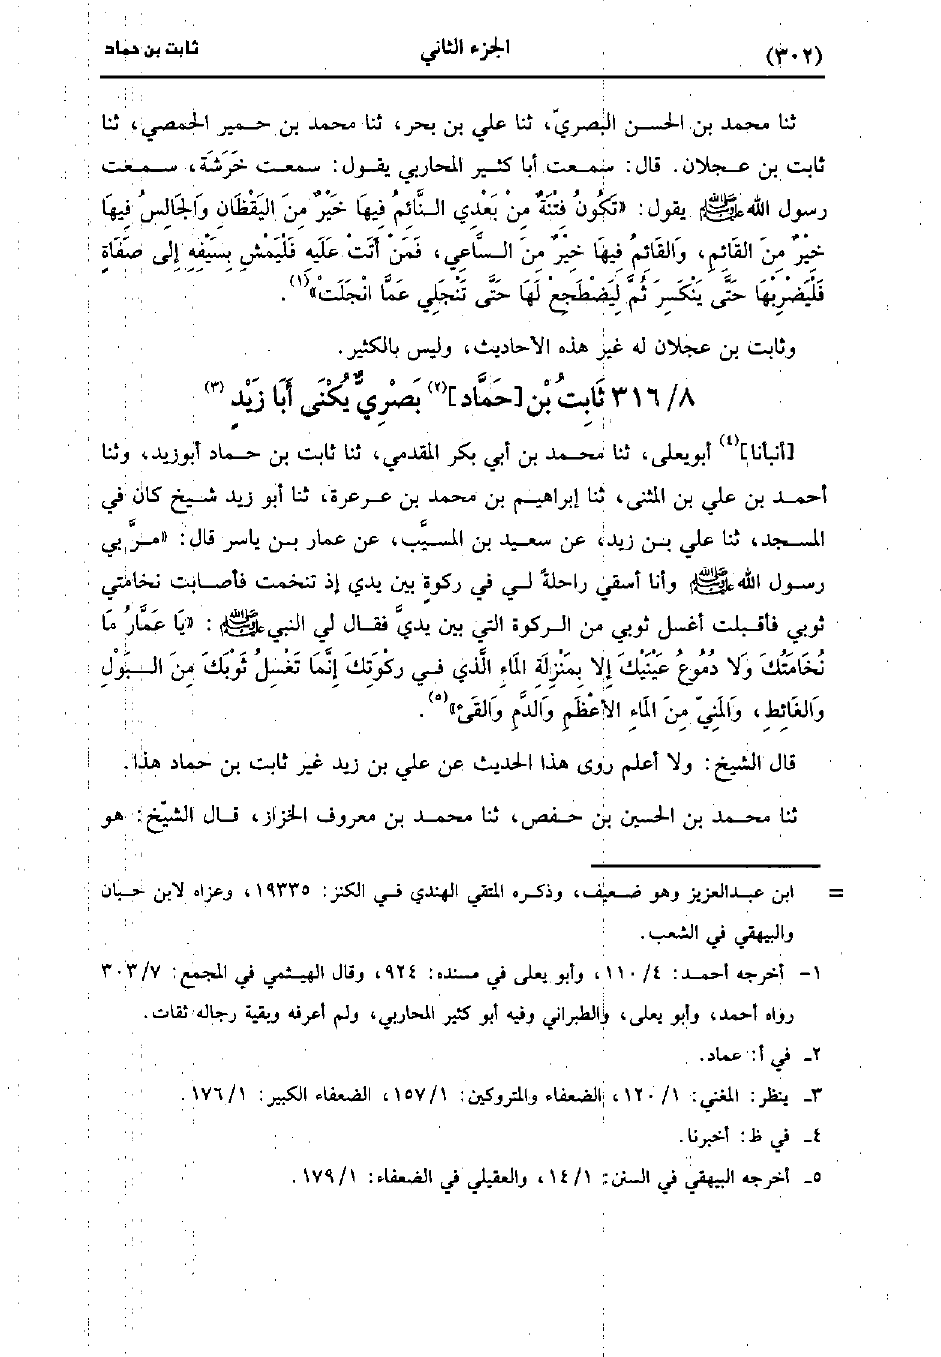 (٣٠٢) الجزء الثاني ثابت بن حماد
ثنا محمد بن الحسن البصريّ، ثنا علي بن بحر، ثنا محمد بن حمير الحمصي، ثنا
ثابت بن عجلان. قال: سمعت أبا كثير المحاربي يقول: سمعت خَرَشَة، سمعت
رسول الله ﷺ يقول: «تَكُونُ فِتْنَةٌ مِنْ بَعْدِي النَّائِمُ فِيهَا خَيْرٌ مِنَ اليَقْظَانِ وَالجَالِسُ فِيهَا
خَيْرٌ مِنَ القَائِمِ، وَالقَائِمُ فِيهَا خَيْرٌ مِنَ السَّاعِي، فَمَنْ أَتَتْ عَلَيهِ فَلْيَمْشِ بِسَيْفِهِ إِلى صَفَاةٍ
فَلْيَضْرِبْهَا حَتَّى يَنْكَسِرَ ثُمَّ لِيَضْطَجِعْ لَهَا حَتَّى تَنْجَلِي عَمَّا انْجَلَتْ»(١).
وثابت بن عجلان له غير هذه الأحاديث، وليس بالكثير.
٨/ ٣١٦ ثَابِتُ بْن [حَمَّاد](٢) بَصْرِيٌّ يُكْنَى أَبَا زَيْدٍ (٣)
[أنبأنا](٤) أبويعلى، ثنا محمد بن أبي بكر المقدمي، ثنا ثابت بن حماد أبوزيد، وثنا
أحمد بن علي بن المثنى، ثنا إبراهيم بن محمد بن عرعرة، ثنا أبو زيد شيخ كان في
المسجد، ثنا علي بن زيد، عن سعيد بن المسيَّب، عن عمار بن ياسر قال: «مرَّ بي
رسول الله ﷺ وأنا أسقي راحلةً لي في ركوةٍ بين يدي إذ تنخمت فأصابت نخامتي
ثوبي فأقبلت أغسل ثوبي من الركوة التي بين يديَّ فقال لي النبي ﷺ : «يَا عَمَّارُ مَا
نُخَامَتُكَ وَلَا دُمُوعُ عَيْنَيْكَ إِلا بِمَنْزِلَةِ المَاءِ الَّذي في ركْوَتِكَ إِنَّمَا تَغْسِلُ ثَوْبَكَ مِنَ البَوْلِ
وَالغَائِطِ، وَالمَنِيّ مِنَ المَاءِ الأَعْظَمِ وَالدَّمِ وَالقَئِ»(٥).
قال الشيخ: ولا أعلم روى هذا الحديث عن علي بن زيد غير ثابت بن حماد هذا.
ثنا محمد بن الحسين بن حفص، ثنا محمد بن معروف الخزاز، قال الشيّخ: هو
= ابن عبدالعزيز وهو ضعيف، وذكره المتقي الهندي في الكنز: ١٩٣٣٥، وعزاه لابن حبان
والبيهقي في الشعب.
١- أخرجه أحمد: ٤/ ١١٠، وأبو يعلى في مسنده: ٩٢٤، وقال الهيثمي في المجمع: ٧/ ٣٠٣
رواه أحمد، وأبو يعلى، والطبراني وفيه أبو كثير المحاربي، ولم أعرفه وبقية رجاله ثقات.
٢ـ في أ: عماد.
٣ـ ينظر: المغني: ١/ ١٢٠، الضعفاء والمتروكين: ١/ ١٥٧، الضعفاء الكبير: ١/ ١٧٦.
٤ـ في ظ: أخبرنا.
٥ـ أخرجه البيهقي في السنن: ١/ ١٤، والعقيلي في الضعفاء: ١/ ١٧٩.